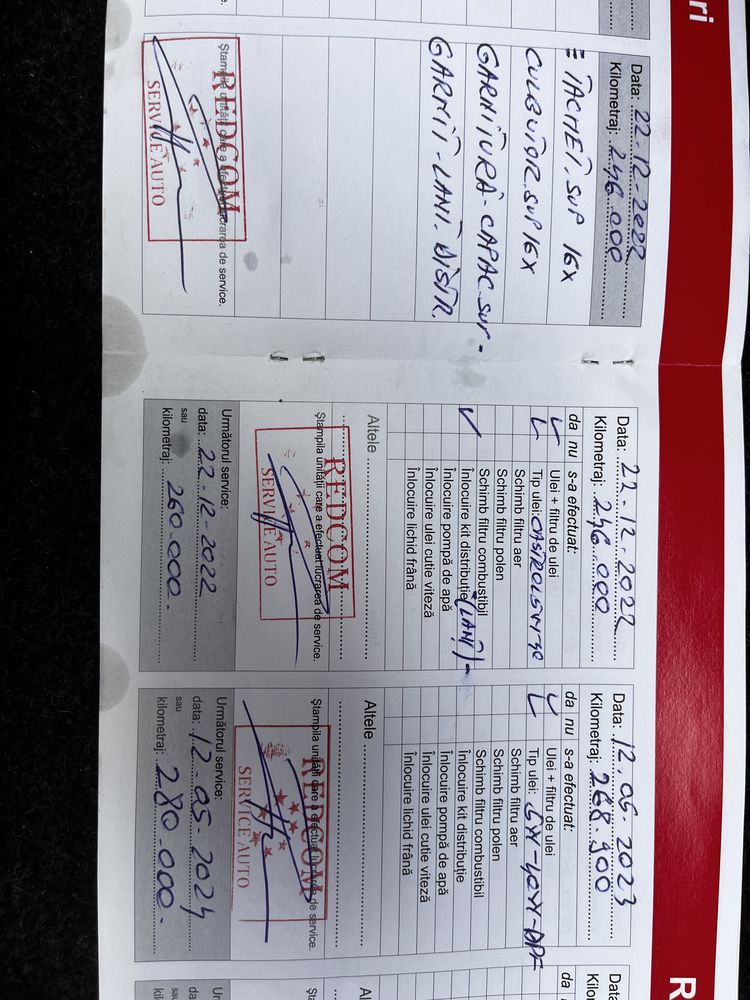 ri
Data: 22-12-2022
Kilometraj: 246.000
TACHEȚI. SUP 16X
CULBUTOR. SUP 16X
GARNITURĂ-CAPAC. SUP-
GARNIT-LANȚ. DISTR.
Ștampila unității care a efectuat lucrarea de service.
REDCOM
SERVICE AUTO
Data: 22.12.2022
Kilometraj: 246.000
da nu s-a efectuat:
Ulei + filtru de ulei
Tip ulei: CASTROL 5W40
Schimb filtru aer
Schimb filtru polen
Schimb filtru combustibil
Înlocuire kit distribuție (LANȚ)-
Înlocuire pompă de apă
Înlocuire ulei cutie viteză
Înlocuire lichid frână
Altele
Ștampila unității care a efectuat lucrarea de service.
REDCOM
SERVICE AUTO
Următorul service:
data: 22-12-2022
sau
kilometraj: 260-000-
Data: 12.05.2023
Kilometraj: 268-900
da nu s-a efectuat:
Ulei + filtru de ulei
Tip ulei:
Schimb filtru aer
Schimb filtru polen
Schimb filtru combustibil
Înlocuire kit distribuție
Înlocuire pompă de apă
Înlocuire ulei cutie viteză
Înlocuire lichid frână
Altele
Ștampila unității care a efectuat lucrarea de service.
REDCOM
SERVICE AUTO
Următorul service:
data: 12-05-2024
sau
kilometraj: 280-000-
R
da